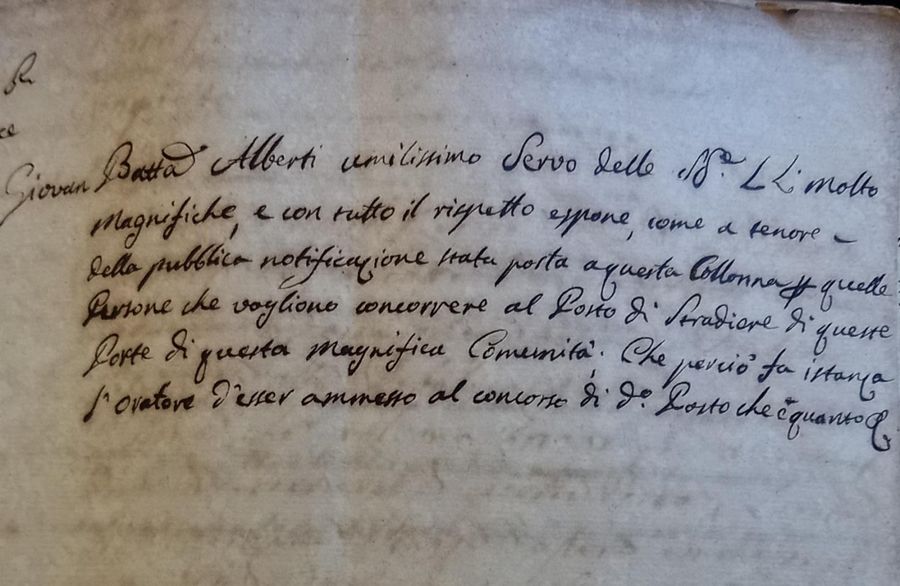 Giovan Batta Alberti umilissimo Servo delle SS.e LL: molto
Magnifiche, e con tutto il rispetto espone, come a tenore
della pubblica notificazione stata posta a questa Collonna p quelle
Persone che vogliono concorrere al Posto di Stradiere di queste
Porte di questa Magnifica Comunità. Che perciò fa istanza
l'Oratore d'esser ammesso al concorso di d.o Posto che è quanto